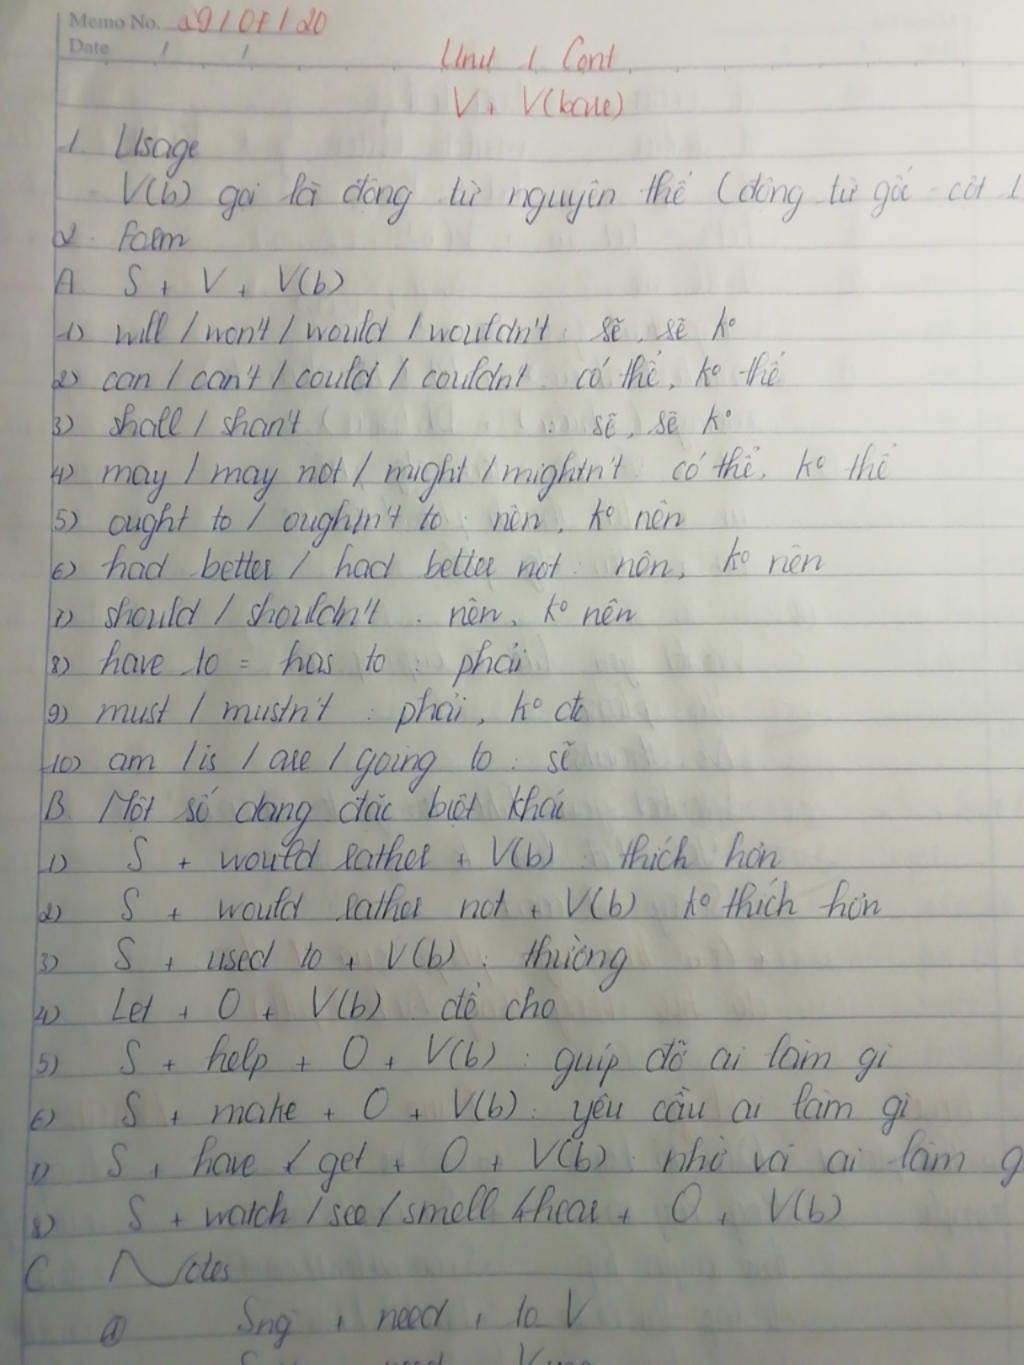 Memo No. 29/07/20
Date / /
Unit 1 Cont
V + V(bare)
1. Usage
- V(b) gọi là động từ nguyên thể (động từ gốc - cột 1
2. Form
A. S + V + V(b)
1) will / won't / would / wouldn't : sẽ, sẽ ko
2) can / can't / could / couldn't : có thể, ko thể
3) shall / shan't : sẽ, sẽ ko
4) may / may not / might / mightn't : có thể, ko thể
5) ought to / oughtn't to : nên, ko nên
6) had better / had better not : nên, ko nên
7) should / shouldn't : nên, ko nên
8) have to = has to : phải
9) must / mustn't : phải, ko đc
10) am / is / are / going to : sẽ
B. Một số dạng đặc biệt khác
1) S + would rather + V(b) : thích hơn
2) S + would rather not + V(b) ko thích hơn
3) S + used to + V(b) : thường
4) Let + O + V(b) : để cho
5) S + help + O + V(b) : giúp đỡ ai làm gì
6) S + make + O + V(b) : yêu cầu ai làm gì
7) S + have / get + O + V(b) : nhờ vả ai làm g
8) S + watch / see / smell / hear + O + V(b)
C. Notes
① Sng + need + to V
need